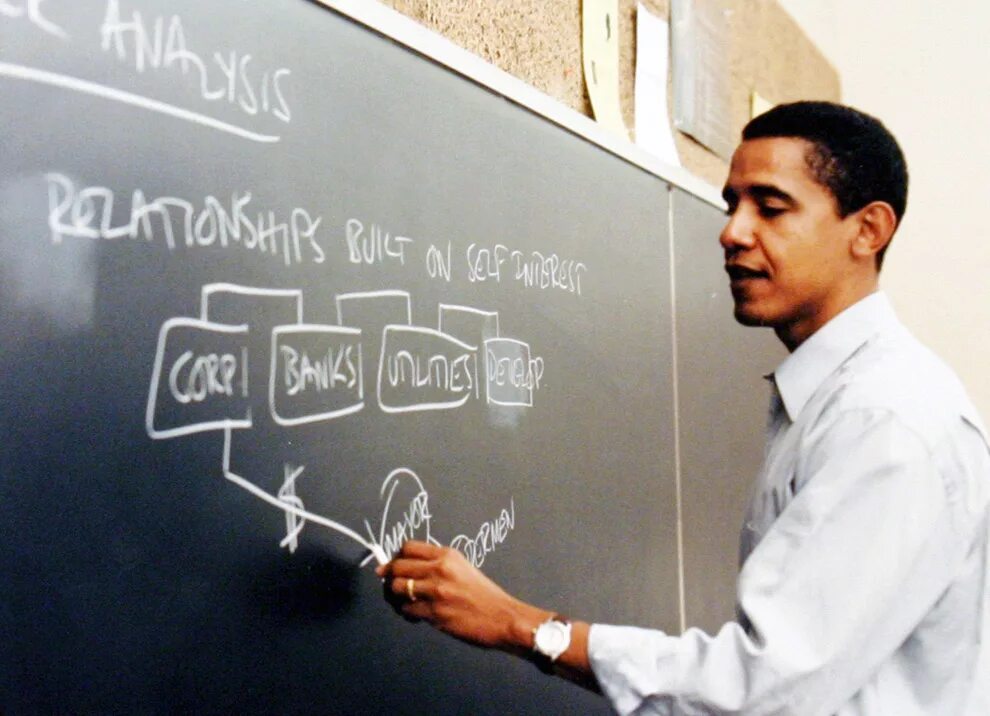 ANALYSIS
RELATIONSHIPS BUILT ON SELF INTEREST
CORP BANKS UTILITIES DEVELOP.
$ MAYOR